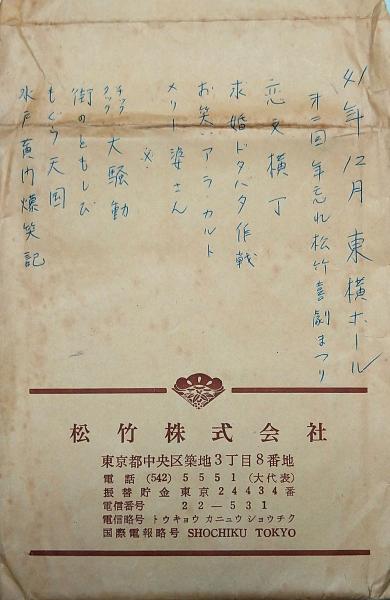 41年12月 東横ホール
才二回 年忘れ松竹喜劇まつり
恋文横丁
求婚ドタバタ作戦
お笑いアラ・カルト
メリー婆さん
×
チャカ
チャカ
大騒動
街のともしび
もぐら天国
水戸黄門爆笑記
松竹株式会社
東京都中央区築地3丁目8番地
電話 (542) 5551 (大代表)
振替貯金東京24434番
電信番号 22-531
電信略号 トウキョウ カニュウ ショウチク
国際電報略号 SHOCHIKU TOKYO